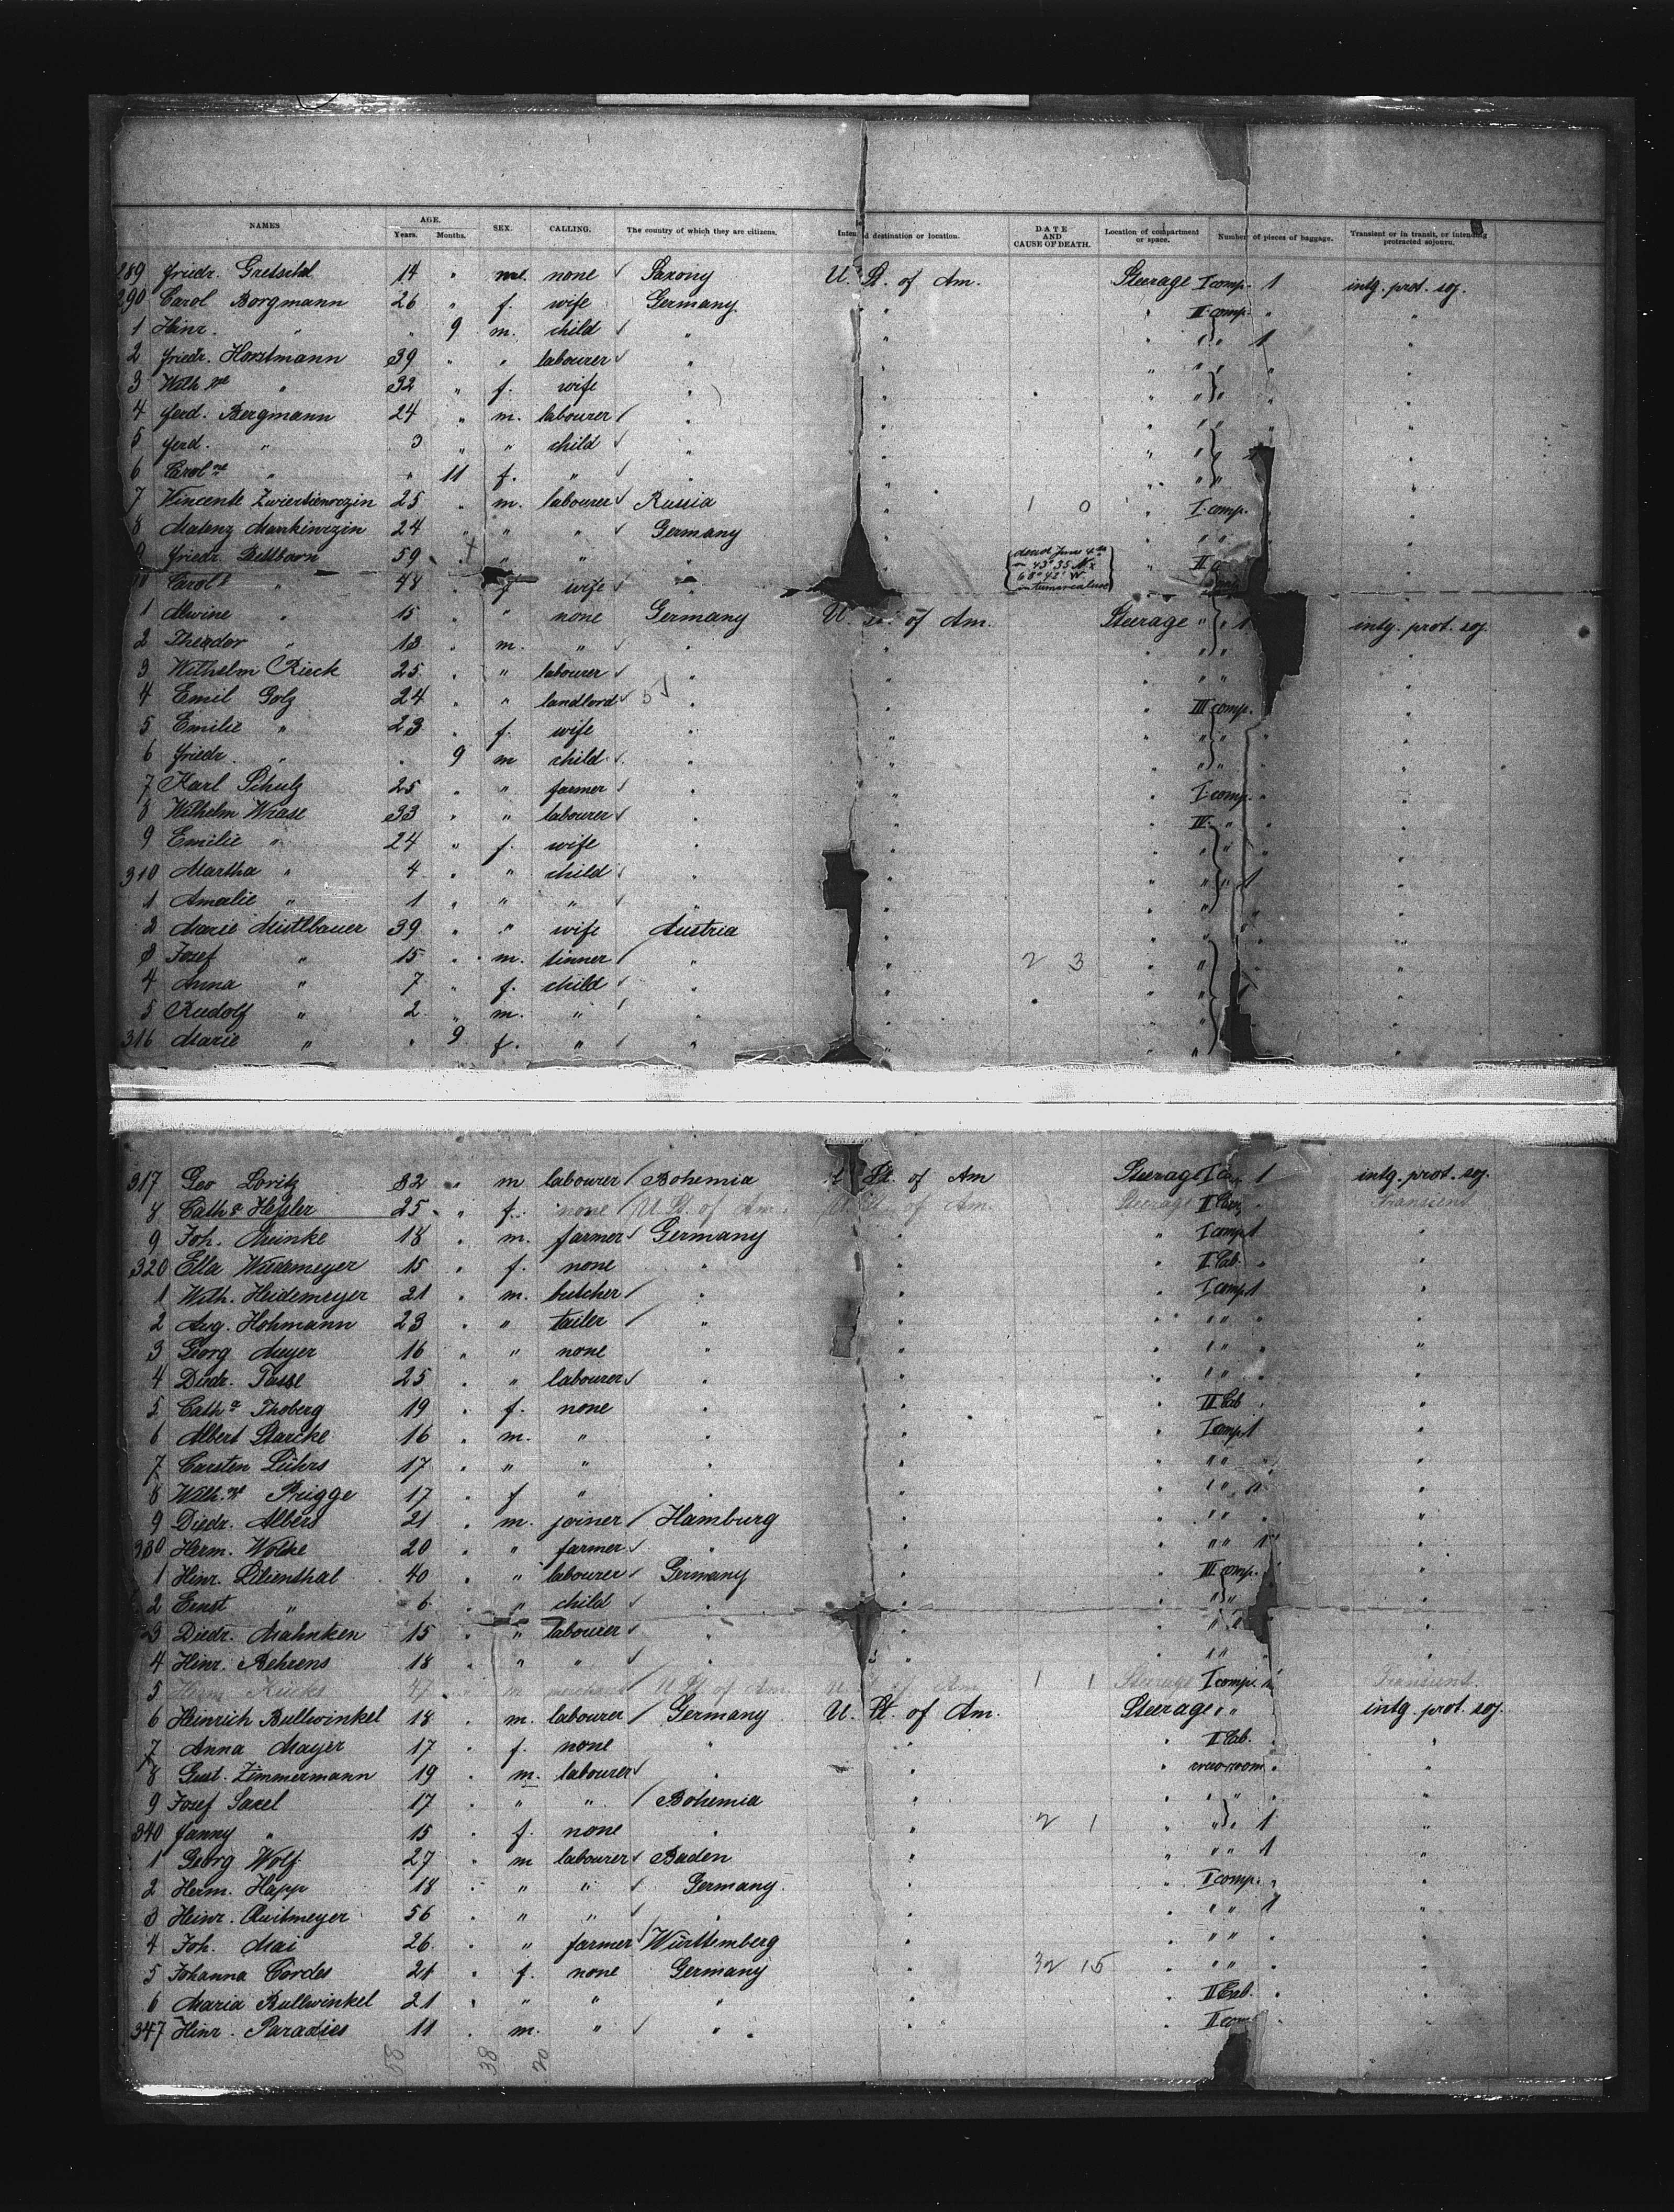 NAMES AGE. Years. Months. SEX. CALLING. The country of which they are citizens. Intended destination or location. DATE AND CAUSE OF DEATH. Location of compartment or space. Number of pieces of baggage. Transient or in transit, or intending protracted sojourn.
289 Friedr. 14 " none Saxony U. St. of Am. Steerage I comp. 1 intg. prot. soj.
290 Carol Borgmann 26 " f. wife Germany " " II comp. " "
1 Heinr. " " 9 m. child " " " " 1 "
2 Friedr. Horstmann 39 " " labourer " " " " "
3 Wilh ne " 32 " f. wife " " " " "
4 Ferd. Bergmann 24 " m. labourer " " " " "
5 Ferd. " 3 " " child " " " " "
6 Carol ne " " 11 f. " " " " " "
7 Vincente 25 " m. labourer Russia " 1 0 " I comp. "
8 24 " " " Germany " " " "
9 Friedr. 59 " " " " dead June 4th in 43° 35 N. 68° 42' W. " II "
10 Carol e " 48 " f wife "
1 Alwine " 15 " " none Germany U. St. of Am. Steerage " " 1 intg. prot. soj.
2 Theodor " 13 " m. " " " " " "
3 Wilhelm Rieck 25 " " labourer " " " " "
4 Emil Golz 24 " " landlord " " III comp. "
5 Emilie " 23 " f. wife " " " " " "
6 Friedr. " " 9 m child " " " " " "
7 Karl Schulz 25 " " farmer " " " I comp. " "
8 Wilhelm Wrase 33 " " labourer " " " IV " " "
9 Emilie " 24 " f. wife " " " " " "
310 Martha " 4 " " child " " " " 1 "
1 Amalie " 1 " " " " " " " "
2 Marie Meistlbauer 39 " " wife Austria " " " " "
3 Josef " 15 " m. tinner " " 2 3 " " " "
4 Anna " 7 " f. child " " " " "
5 Rudolf " 2 " m. " " " " " "
316 Marie " " 9 f. " " " " " "
317 Geo Loritz 32 " m labourer Bohemia U. St. of Am Steerage I 1 intg. prot. soj.
8 Cath e Hessler 25 " f. none U. St. of Am. U. St. of Am. Steerage II " Transient
9 Joh. Meinke 18 " m. farmer Germany " " I comp 1 "
320 Ella Wiedemeyer 15 " f. none " " " II Cab. " "
1 Wilh. Heidemeyer 21 " m. butcher " " " I comp 1 "
2 Aug. Hohmann 23 " " tailer " " " " " " "
3 Georg Meyer 16 " " none " " " " " " "
4 Diedr. Tasse 25 " " labourer " " " " " " "
5 Cath e Thoberg 19 " f. none " " " II Cab " "
6 Albert Starcke 16 " m. " " " " I comp 1 "
7 Carsten Lührs 17 " " " " " " " " " "
8 Wilh. ne Prigge 17 " f " " " " " " " "
9 Diedr. Albers 21 " m. joiner Hamburg " " " " " "
330 Herm. Wolke 20 " " farmer " " " " " 1 "
1 Hinr. Lilienthal 40 " " labourer Germany " " III comp. "
2 Ernst " 6 " " child " " " " " "
3 Diedr. Mahnken 15 " " labourer " " " " "
4 Hinr. Behrens 18 " " " " " " " " "
5 Herm. Kücks 47 " m merchant U. St. of Am. U. St. of Am. 1 1 Steerage I comp. 1 Transient
6 Heinrich Bullwinkel 18 " m. labourer Germany U. St. of Am. Steerage " " intg. prot. soj.
7 Anna Mayer 17 " f. none " " " II Cab. " "
8 Gust. Zimmermann 19 " m. labourer " " " crewroom " "
9 Josef Saxel 17 " " " Bohemia " " " " " "
340 Fanny " 15 " f. none " " 2 1 " " " 1 "
1 Georg Wolf 27 " m labourer Baden " " " " 1 "
2 Herm. Happ 18 " " " Germany. " " I comp. " "
3 Heinr. Quitmeyer 56 " " " " " " " " 1 "
4 Joh. Mai 26 " " farmer Württemberg " " " " " "
5 Johanna Cordes 21 " f. none Germany " 32 15 " " " " "
6 Maria Bullwinkel 21 " " " " " " II Cab. " "
347 Hinr. Paradies 11 " m. " " " " II com "
58 38 20